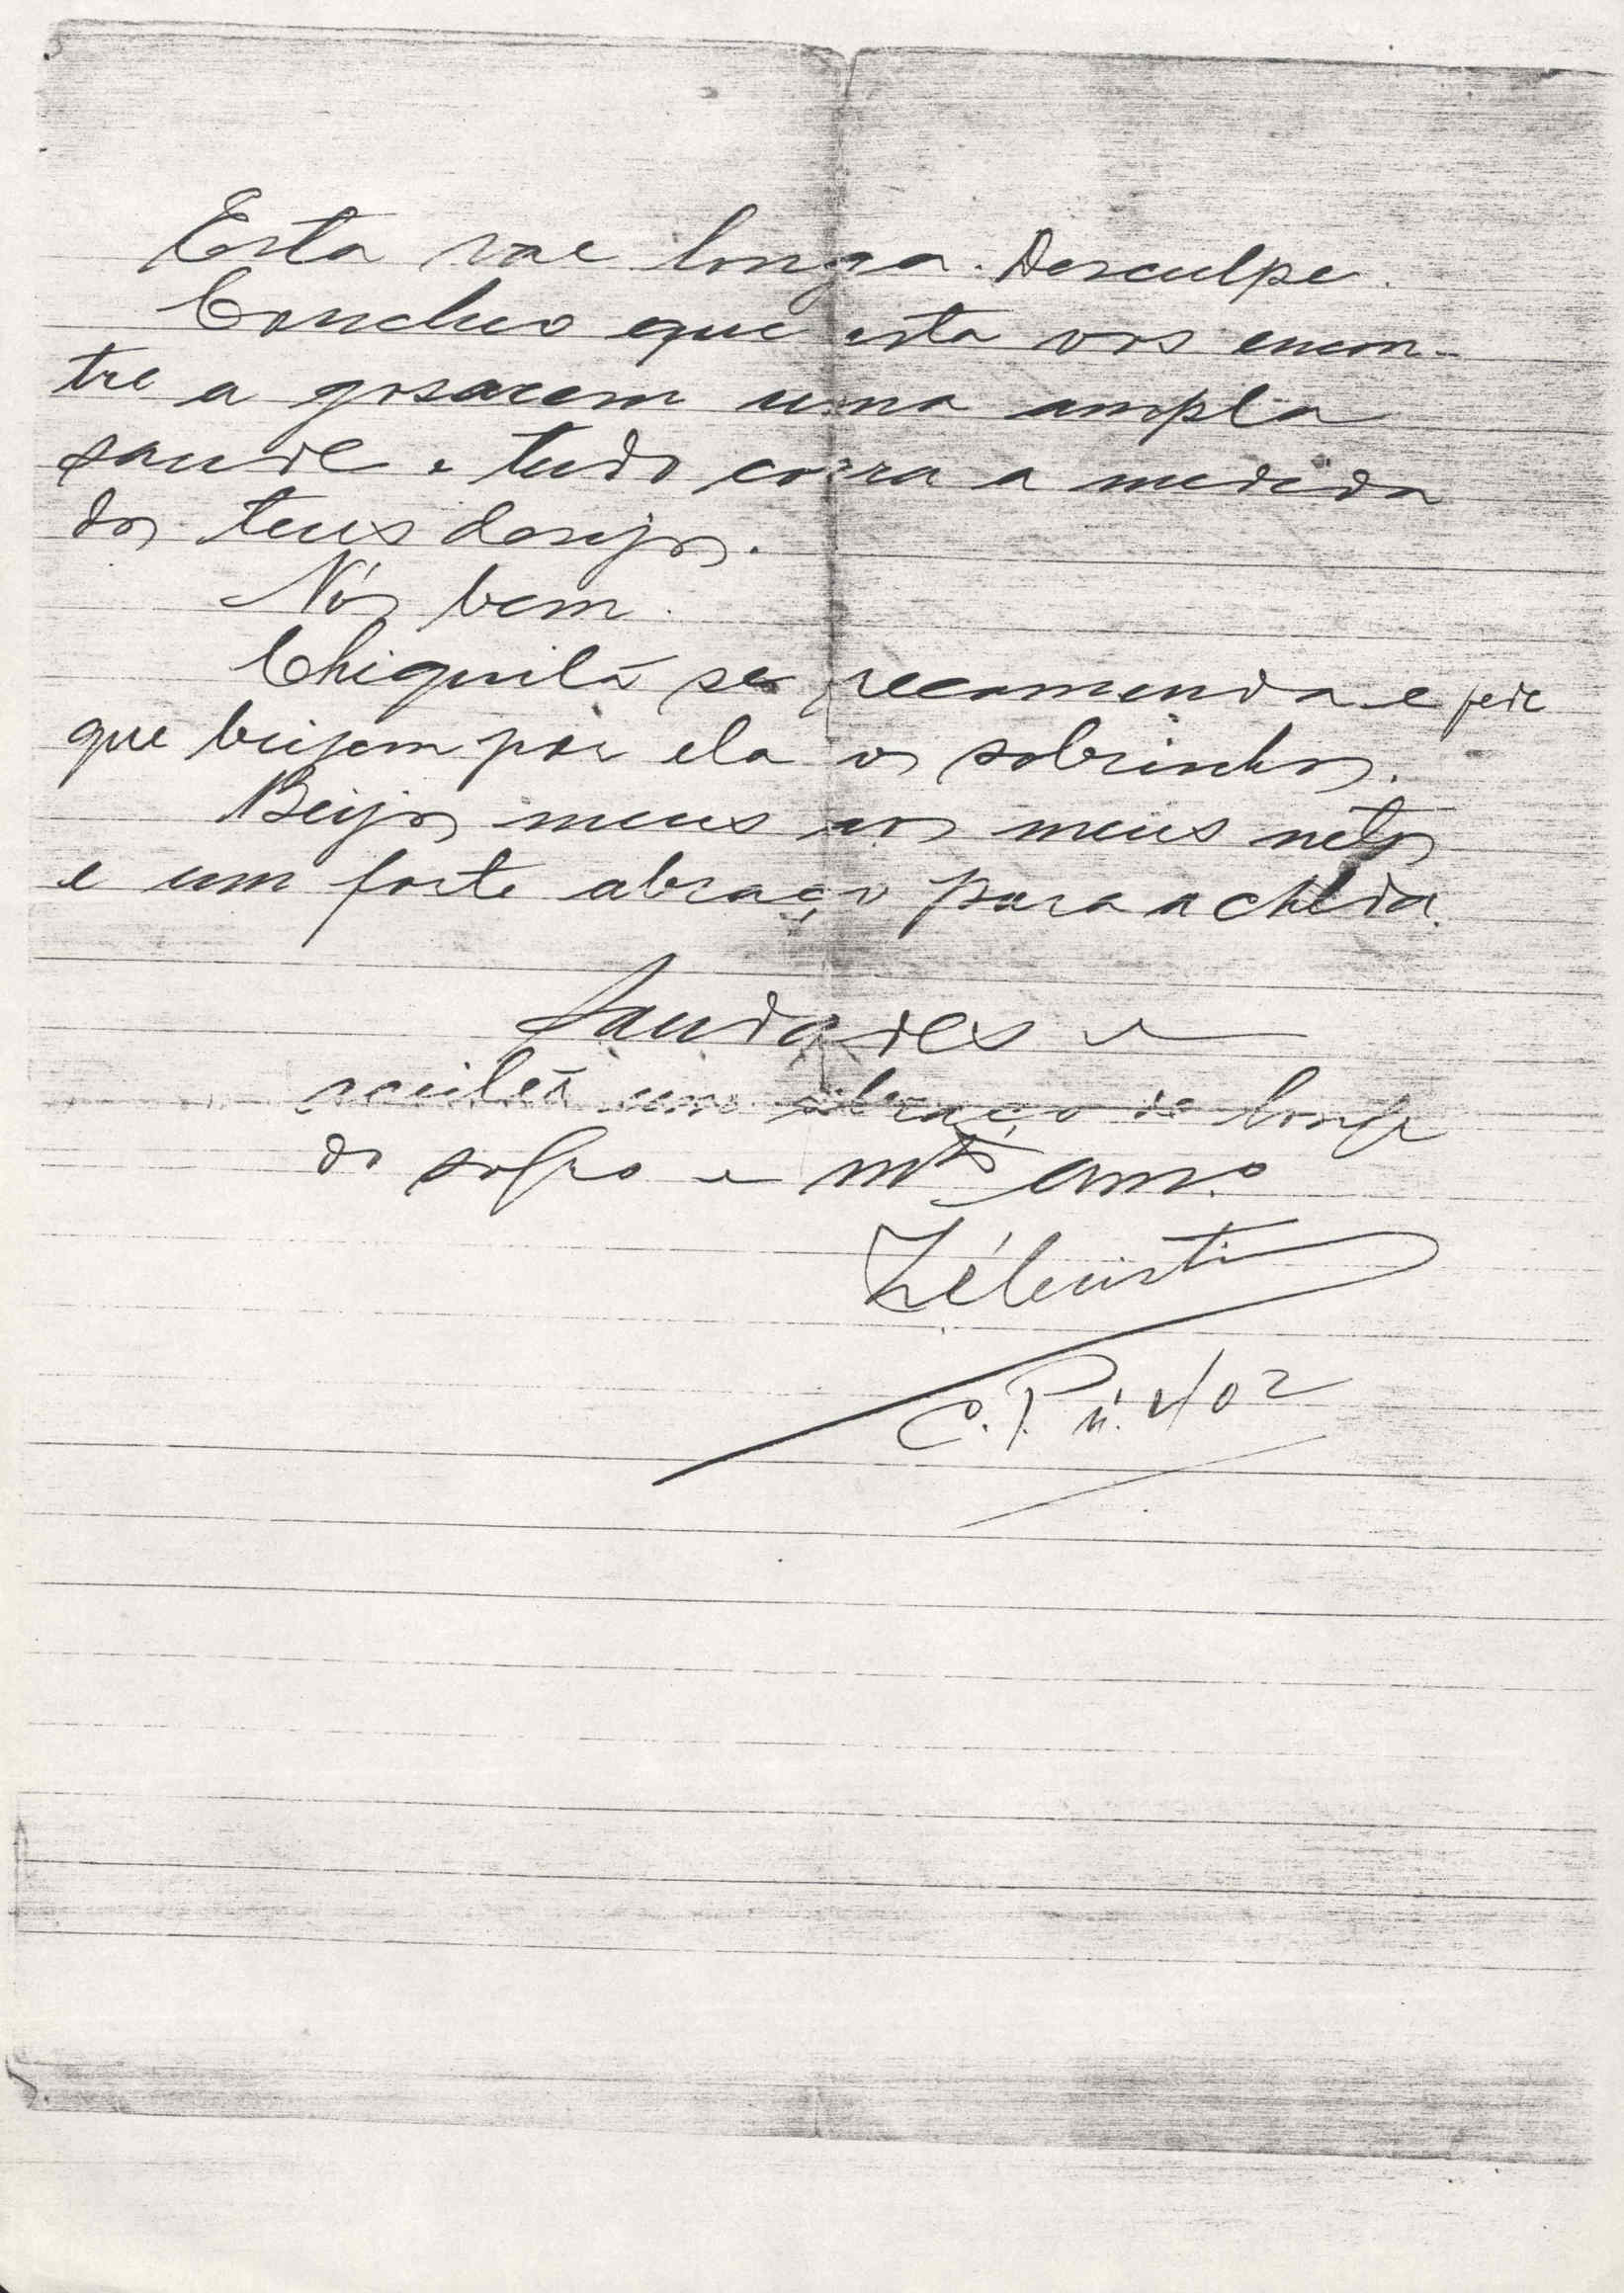 Esta vae longa. Desculpe.
Concluo que esta vos encon-
tre a gosarem uma ampla
saude e tudo corra a medida
dos teus desejos.
Nós bem.
Chiquita se recomenda e pede
que beijem por ela os sobrinhos.
Beijos meus aos meus netos
e um forte abraço para a
Saudades e
um abraço de longe
do sogro e mto amo
C. P. n. 402